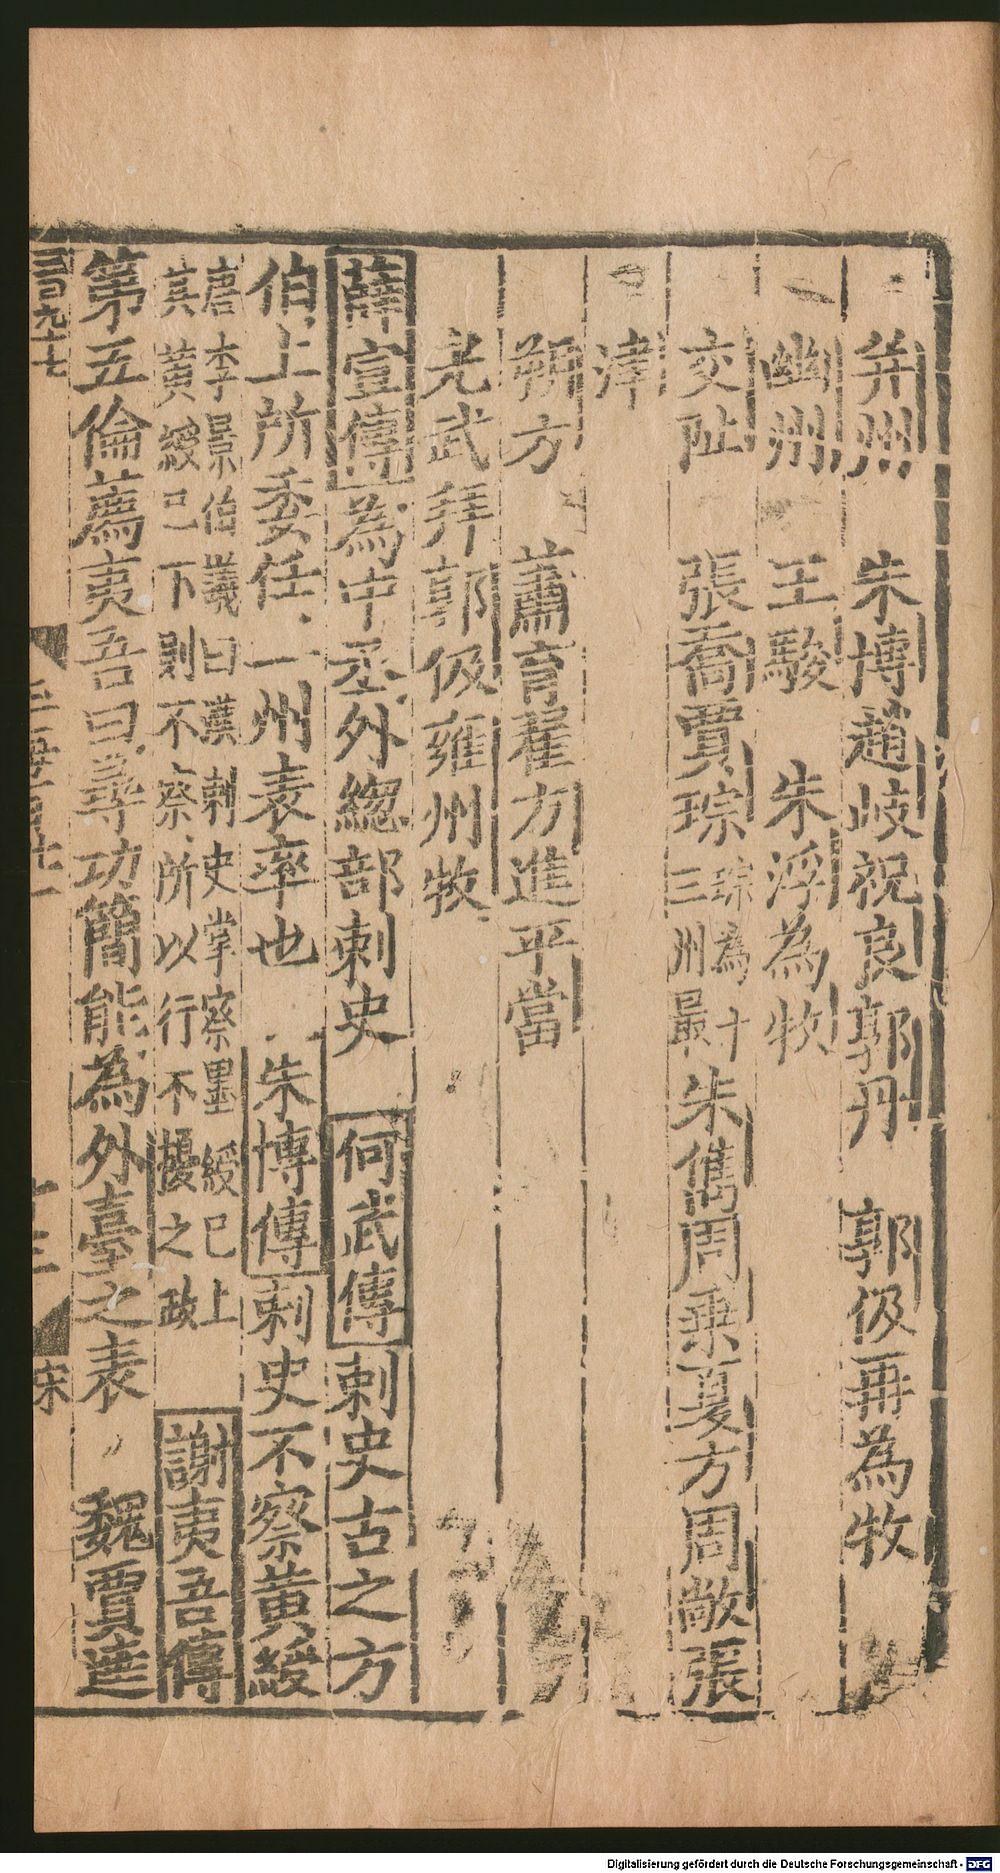 并州　朱博趙岐祝良郭丹　郭伋再為牧
幽州　王駿　朱浮為牧
交阯　張喬賈琮琮為十三州最朱儁周乗夏方周敞張
津
朔方　蕭育翟方進平當
光武拜郭伋雍州牧
薛宣傳為中丞外緫部刺史　何武傳刺史古之方
伯上所委任一州表率也　朱博傳刺史不察黄綬
唐李景伯議曰漢刺史掌察墨綬已上
黄綬已下則不察所以行不擾之政　謝夷吾傳
第五倫薦夷吾曰尋功簡能為外臺之表　魏賈逵
宋
Digitalisierung gefördert durch die Deutsche Forschungsgemeinschaft - DFG